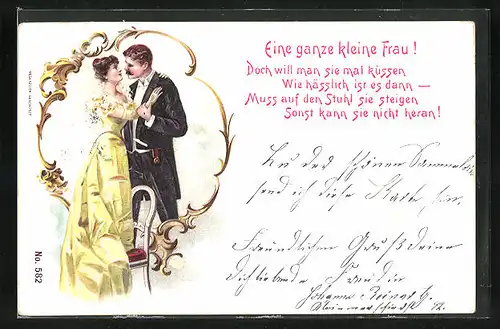 Eine ganze kleine Frau!
Doch will man sie mal küssen
Wie hässlich ist es dann —
Muss auf den Stuhl sie steigen
Sonst kann sie nicht heran!
Zu der schönen
send ich diese Karte
Freundlichen Gruß deine
dich liebende Freundin
Johanna
No. 582